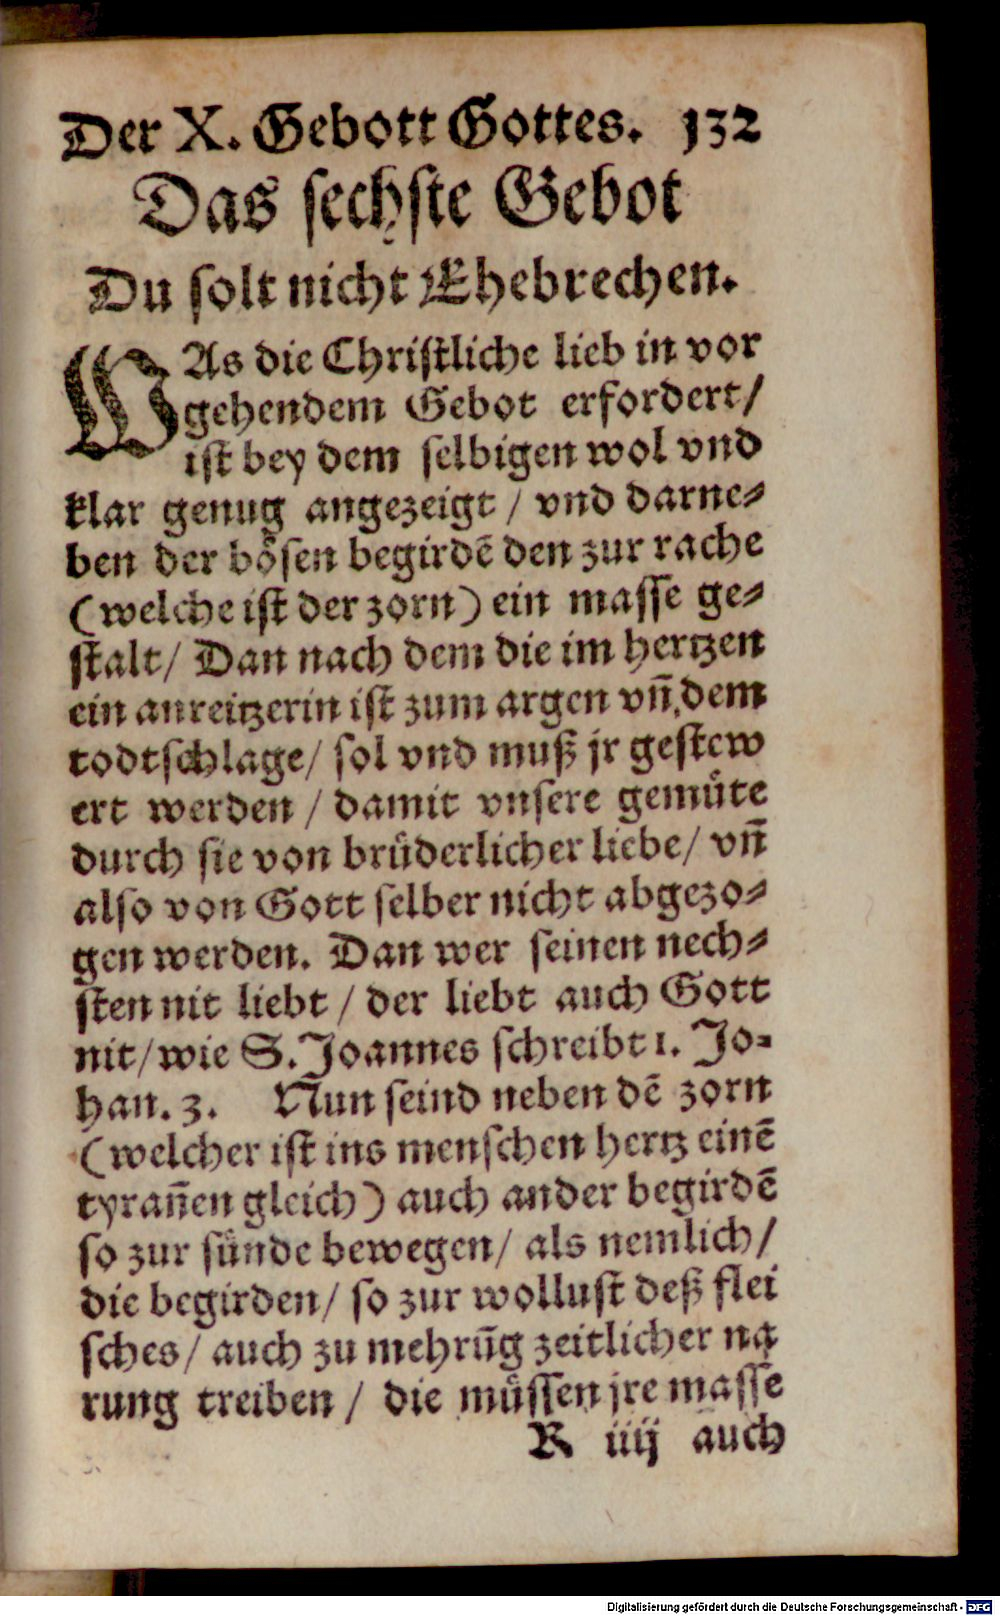 Der X. Gebott Gottes. 132
Das sechste Gebot
Du solt nicht Ehebrechen.
WAs die Christliche lieb in vor
gehendem Gebot erfordert/
ist bey dem selbigen wol vnd
klar genug angezeigt / vnd darne⸗
ben der bösen begirdẽ den zur rache
(welche ist der zorn) ein masse ge⸗
stalt/ Dan nach dem die im hertzen
ein anreitzerin ist zum argen vñ dem
todtschlage/ sol vnd muß jr gestew
ert werden / damit vnsere gemüte
durch sie von brüderlicher liebe/ vñ
also von Gott selber nicht abgezo⸗
gen werden. Dan wer seinen nech⸗
sten nit liebt / der liebt auch Gott
nit/ wie S. Joannes schreibt 1. Jo⸗
han. 3. Nun seind neben dẽ zorn
(welcher ist ins menschen hertz einẽ
tyrañen gleich) auch ander begirdẽ
so zur sünde bewegen/ als nemlich/
die begirden/ so zur wollust deß flei
sches/ auch zu mehrũg zeitlicher na
rung treiben / die müssen jre massẽ
R iiij auch
Digitalisierung gefördert durch die Deutsche Forschungsgemeinschaft - DFG